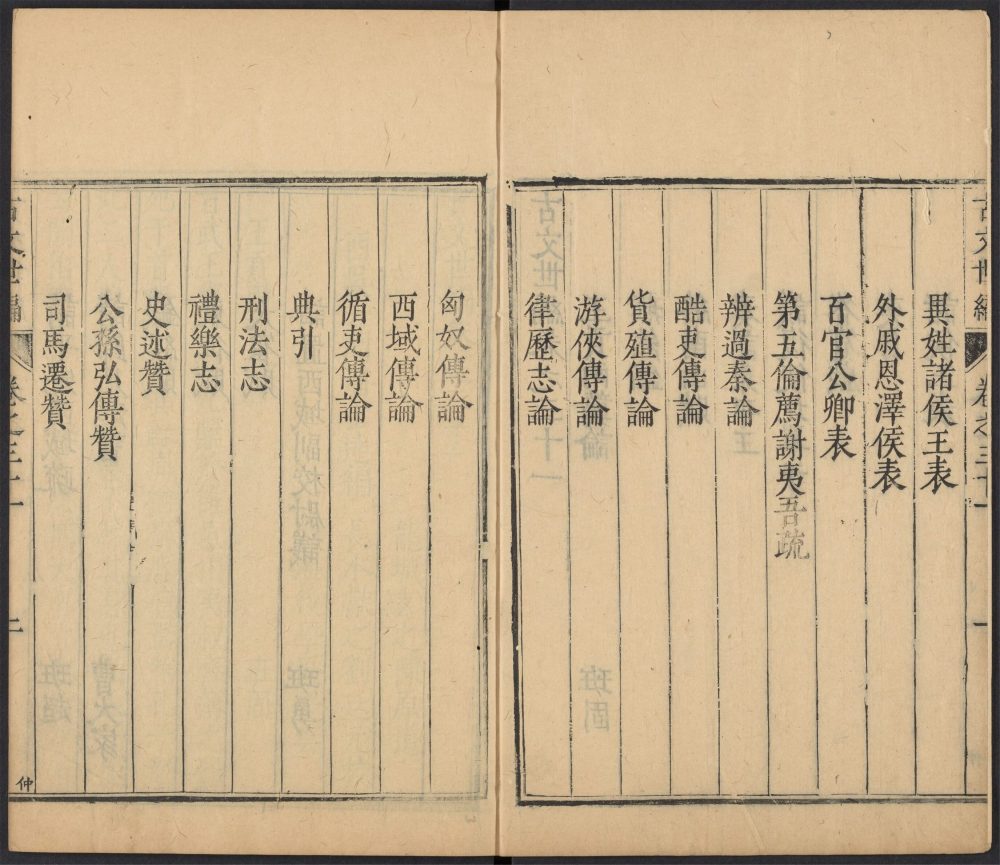 古文世編
卷之三十一
一
異姓諸侯王表
外戚恩澤侯表
百官公卿表
第五倫薦謝夷吾疏
辨過秦論
酷吏傳論
貨殖傳論
游俠傳論
律歷志論
匈奴傳論
西域傳論
循吏傳論
典引
刑法志
禮樂志
史述贊
公孫弘傳贊
司馬遷贊
古文世編
卷之三十一
二
仲